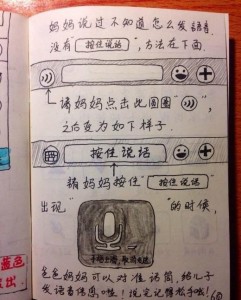 妈妈说过不知道怎么发语音
没有"按住说话",方法在下面
请妈妈点击此圆圈" ",
之后变为如下样子.
按住说话
请妈妈按住"按住说话"
出现" "的时候,
手指上滑,取消发送
爸爸妈妈可以对准话筒,给儿子
发语音信息啦!说完记得松手啦!
蓝色